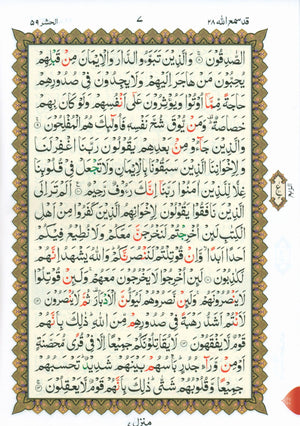 قد سمع الله ٢٨
٧
الحشر ٥٩
الصّٰدِقُوْنَ ۞ وَالَّذِيْنَ تَبَوَّءُو الدَّارَ وَالْاِيْمَانَ مِنْ قَبْلِهِمْ
يُحِبُّوْنَ مَنْ هَاجَرَ اِلَيْهِمْ وَلَا يَجِدُوْنَ فِيْ صُدُوْرِهِمْ
حَاجَةً مِّمَّآ اُوْتُوْا وَيُؤْثِرُوْنَ عَلٰٓى اَنْفُسِهِمْ وَلَوْ كَانَ بِهِمْ
خَصَاصَةٌ وَمَنْ يُّوْقَ شُحَّ نَفْسِهٖ فَاُولٰٓئِكَ هُمُ الْمُفْلِحُوْنَ
وَالَّذِيْنَ جَآءُوْ مِنْۢ بَعْدِهِمْ يَقُوْلُوْنَ رَبَّنَا اغْفِرْ لَنَا
وَلِاِخْوَانِنَا الَّذِيْنَ سَبَقُوْنَا بِالْاِيْمَانِ وَلَا تَجْعَلْ فِيْ قُلُوْبِنَا
غِلًّا لِّلَّذِيْنَ اٰمَنُوْا رَبَّنَآ اِنَّكَ رَءُوْفٌ رَّحِيْمٌ ۞ اَلَمْ تَرَ اِلَى
الَّذِيْنَ نَافَقُوْا يَقُوْلُوْنَ لِاِخْوَانِهِمُ الَّذِيْنَ كَفَرُوْا مِنْ اَهْلِ
الْكِتٰبِ لَئِنْ اُخْرِجْتُمْ لَنَخْرُجَنَّ مَعَكُمْ وَلَا نُطِيْعُ فِيْكُمْ
اَحَدًا اَبَدًا وَّاِنْ قُوْتِلْتُمْ لَنَنْصُرَنَّكُمْ وَاللّٰهُ يَشْهَدُ اِنَّهُمْ
لَكٰذِبُوْنَ ۞ لَئِنْ اُخْرِجُوْا لَا يَخْرُجُوْنَ مَعَهُمْ وَلَئِنْ قُوْتِلُوْا
لَا يَنْصُرُوْنَهُمْ وَلَئِنْ نَّصَرُوْهُمْ لَيُوَلُّنَّ الْاَدْبَارَ ثُمَّ لَا يُنْصَرُوْنَ ۞
لَاَنْتُمْ اَشَدُّ رَهْبَةً فِيْ صُدُوْرِهِمْ مِّنَ اللّٰهِ ذٰلِكَ بِاَنَّهُمْ
قَوْمٌ لَّا يَفْقَهُوْنَ ۞ لَا يُقَاتِلُوْنَكُمْ جَمِيْعًا اِلَّا فِيْ قُرًى مُّحَصَّنَةٍ
اَوْ مِنْ وَّرَآءِ جُدُرٍ بَاْسُهُمْ بَيْنَهُمْ شَدِيْدٌ تَحْسَبُهُمْ
جَمِيْعًا وَّقُلُوْبُهُمْ شَتّٰى ذٰلِكَ بِاَنَّهُمْ قَوْمٌ لَّا يَعْقِلُوْنَ ۞
منزل